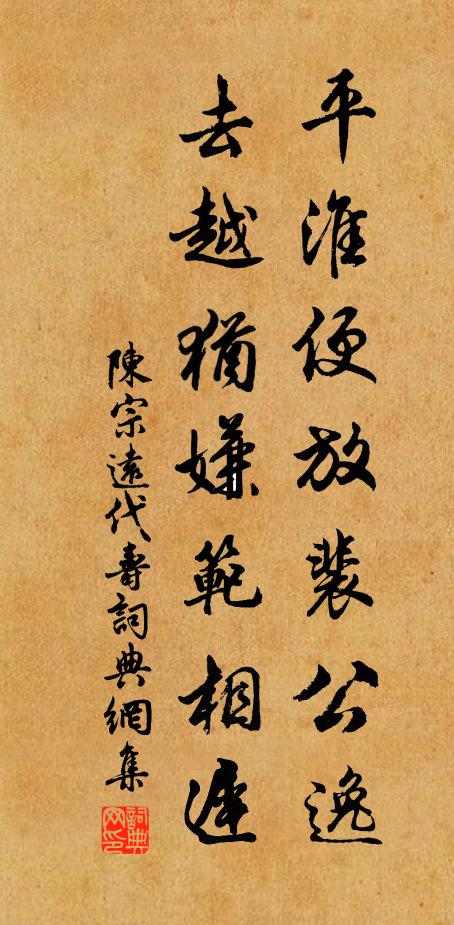 平淮便放裴公逸
去越猶嫌範相遲
陳宗遠代壽詞典網集
詞典網印